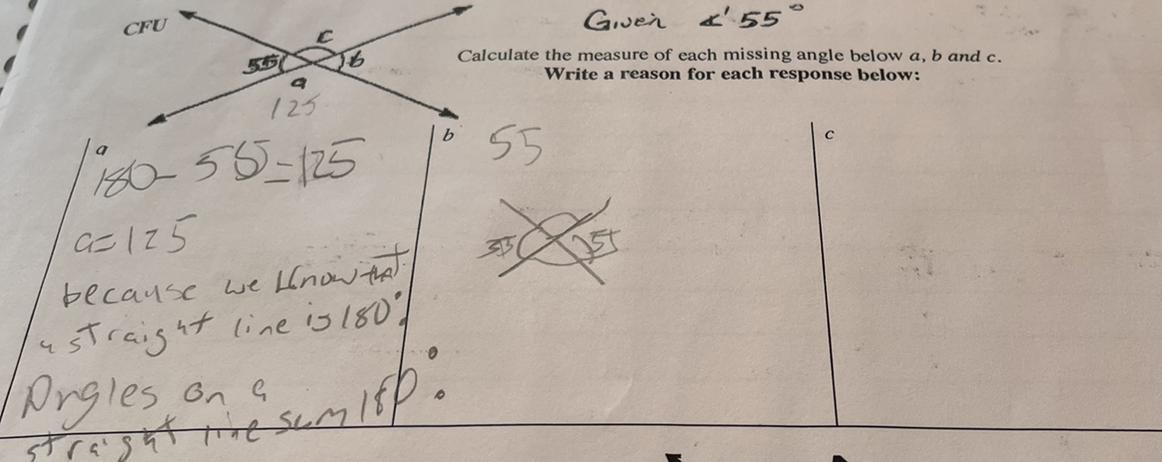 CFU
Given ∠' 55°
c
55
b
a
125
Calculate the measure of each missing angle below a, b and c.
Write a reason for each response below:
a
180 - 55 = 125
a = 125
because we know that
a straight line is 180°
Angles on a
straight line sum 180°.
b
55
55
55
c